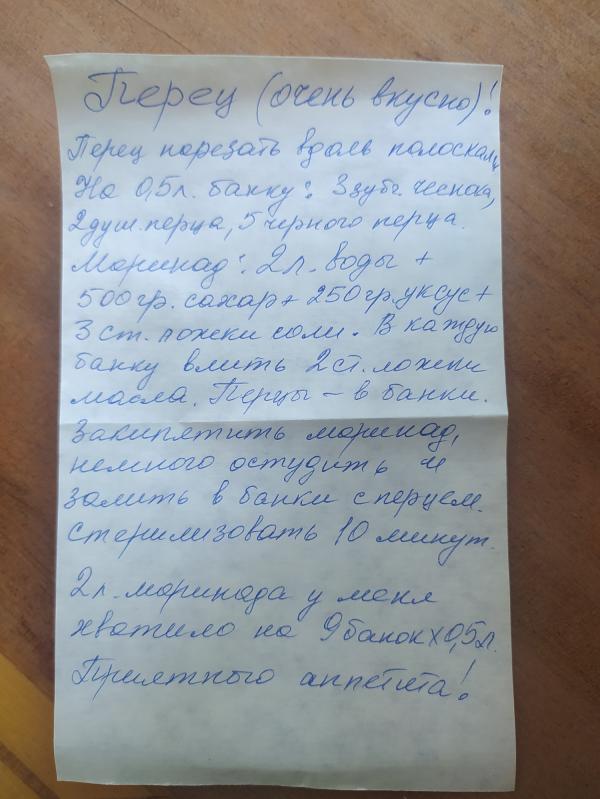 Перец (очень вкусно)!
Перец порезать вдоль полосками
На 0,5л. банку: 3 зубч. чеснока,
2 душ. перца, 5 черного перца.
Маринад: 2 л. воды +
500 гр. сахар + 250 гр. уксус +
3 ст. ложки соли. В каждую
банку влить 2 ст. ложки
масла. Перцы – в банки.
Закипятить маринад,
немного остудить и
залить в банки с перцем.
Стерилизовать 10 минут.
2 л. маринада у меня
хватило на 9 банок х 0,5 л.
Приятного аппетита!